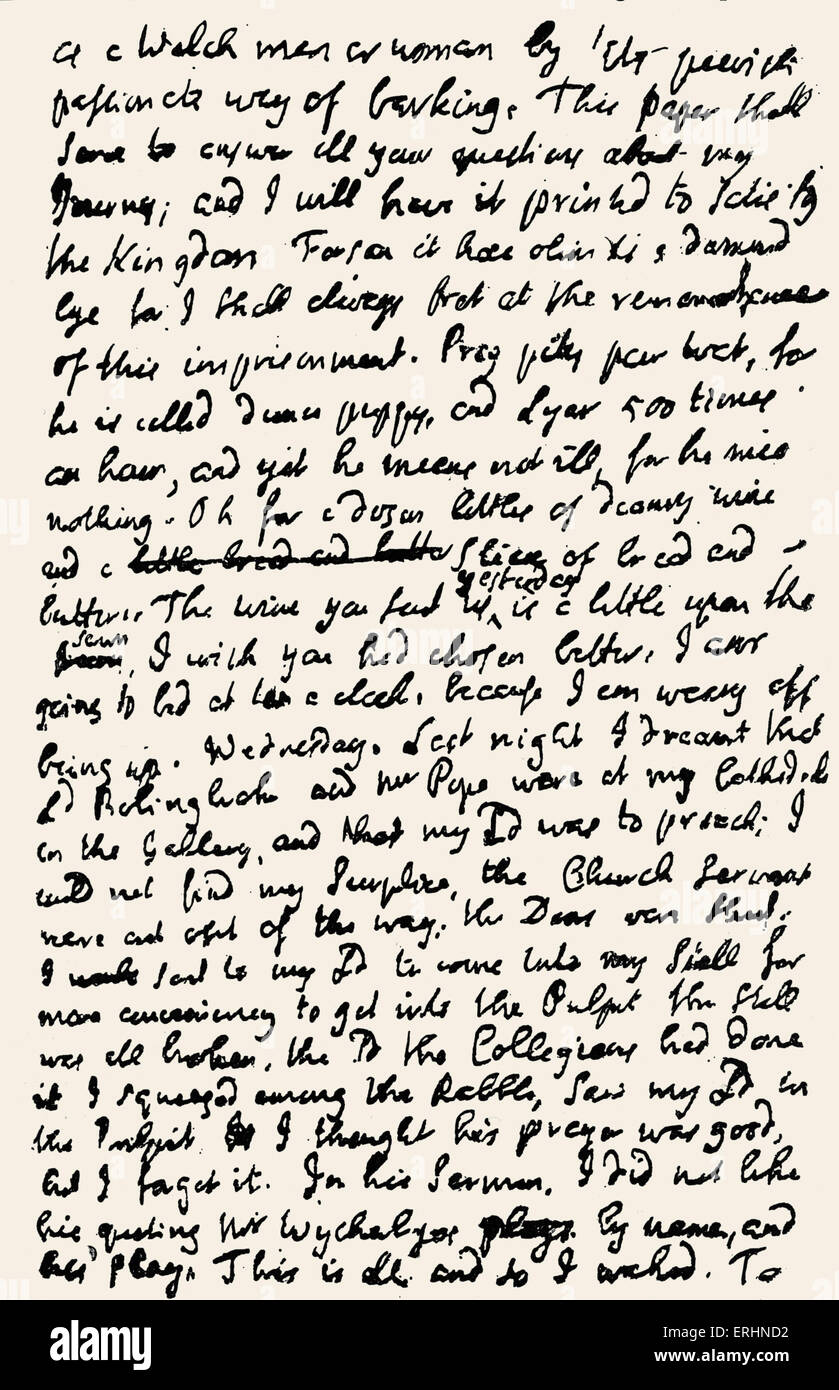 as a Welch man or woman by its peevish
passionate way of barking. This paper shall
serve to answer all your questions about my
Journy; and I will have it printed to satisfy
the Kingdom Forsan et haec olim is a damned
lye for I shall always fret at the remembrance
of this imprisonment. Pray pity poor Wat, for
he is called dunce puppy, and Lyar 500 times
an hour, and yet he means not ill, for he mea
nothing. Oh for a dozen bottles of deanry wine
and a little bread and butter slice of bread and
butter. The wine you sent us yesterday is a little upon the
sowr, I wish you had chosen better. I am
going to bed at ten a clock, because I am weary off
being up. Wednesday. Last night I dreamt that
Ld Bolingbroke and Mr Pope were at my Cathedrall
in the Gallery, and that my Ld was to preach; I
could not find my Surplice, the Church Servants
were all out of the way; the Doors were shut.
I sent to my Ld to come into my Stall for
more conveniency to get into the Pulpit the Stall
was all broken, the Collegians had done
it I squeezed among the Rabble, saw my Ld in
the Pulpit I thought his prayer was good,
but I forget it. In his Sermon, I did not like
his quoting Mr Wycherlye plays by name, and
his plays. This is all and so I waked. To
alamy
Image ID: ERHND2
www.alamy.com